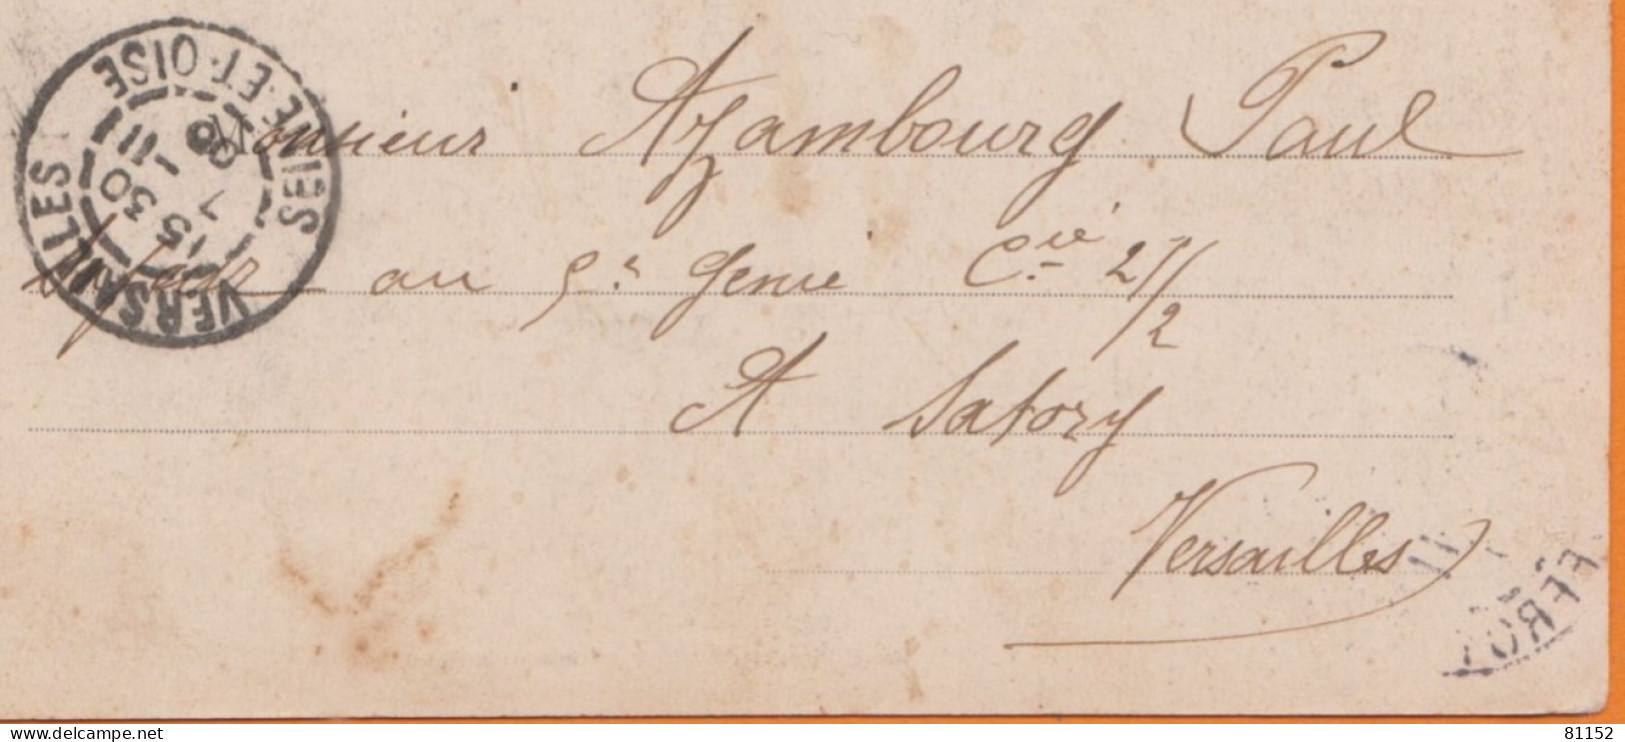 VERSAILLES
SEINE-ET-OISE
15 30
11 - 1
06
Monsieur Azambourg Paul
au 5e Genie Cie 21/2
A Satory
Versailles
delcampe.net
81152